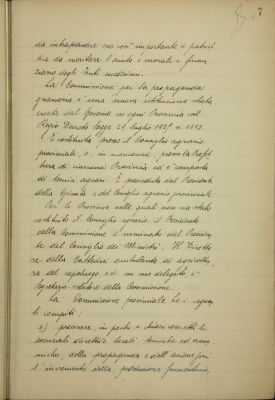 7
da intraprendere una così importante e patriot
tica da meritare l'aiuto e morale e finan
ziario degli Enti massimi.
La Commissione per la propaganda
granaria è una nuova istituzione
creata dal Governo in ogni Provincia col
Regio Decreto legge 29 luglio 1925 n.
È costituita presso il Consiglio agrario
provinciale, o, in mancanza, presso la Prefet
tura di ciascuna Provincia ed è composta
di tecnici agrari. È presieduta dal Presidente
della e del Consiglio agrario provinciale.
Per le Provincie nelle quali non sia stato
costituito il Consiglio agrario, il Presidente
della Commissione è nominato dal Presiden
te del Consiglio dei Ministri. Il Diretto
re della Cattedra ambulante di agricoltu
ra del capoluogo, od un suo delegato, è
Segretario relatore della Commissione.
La Commissione provinciale ha i seguen
ti compiti:
a) precisare, in pochi e chiari concetti le
essenziali direttive locali, tecniche ed econo
miche, della propaganda e dell'azione per
l'incremento della produzione frumentaria,